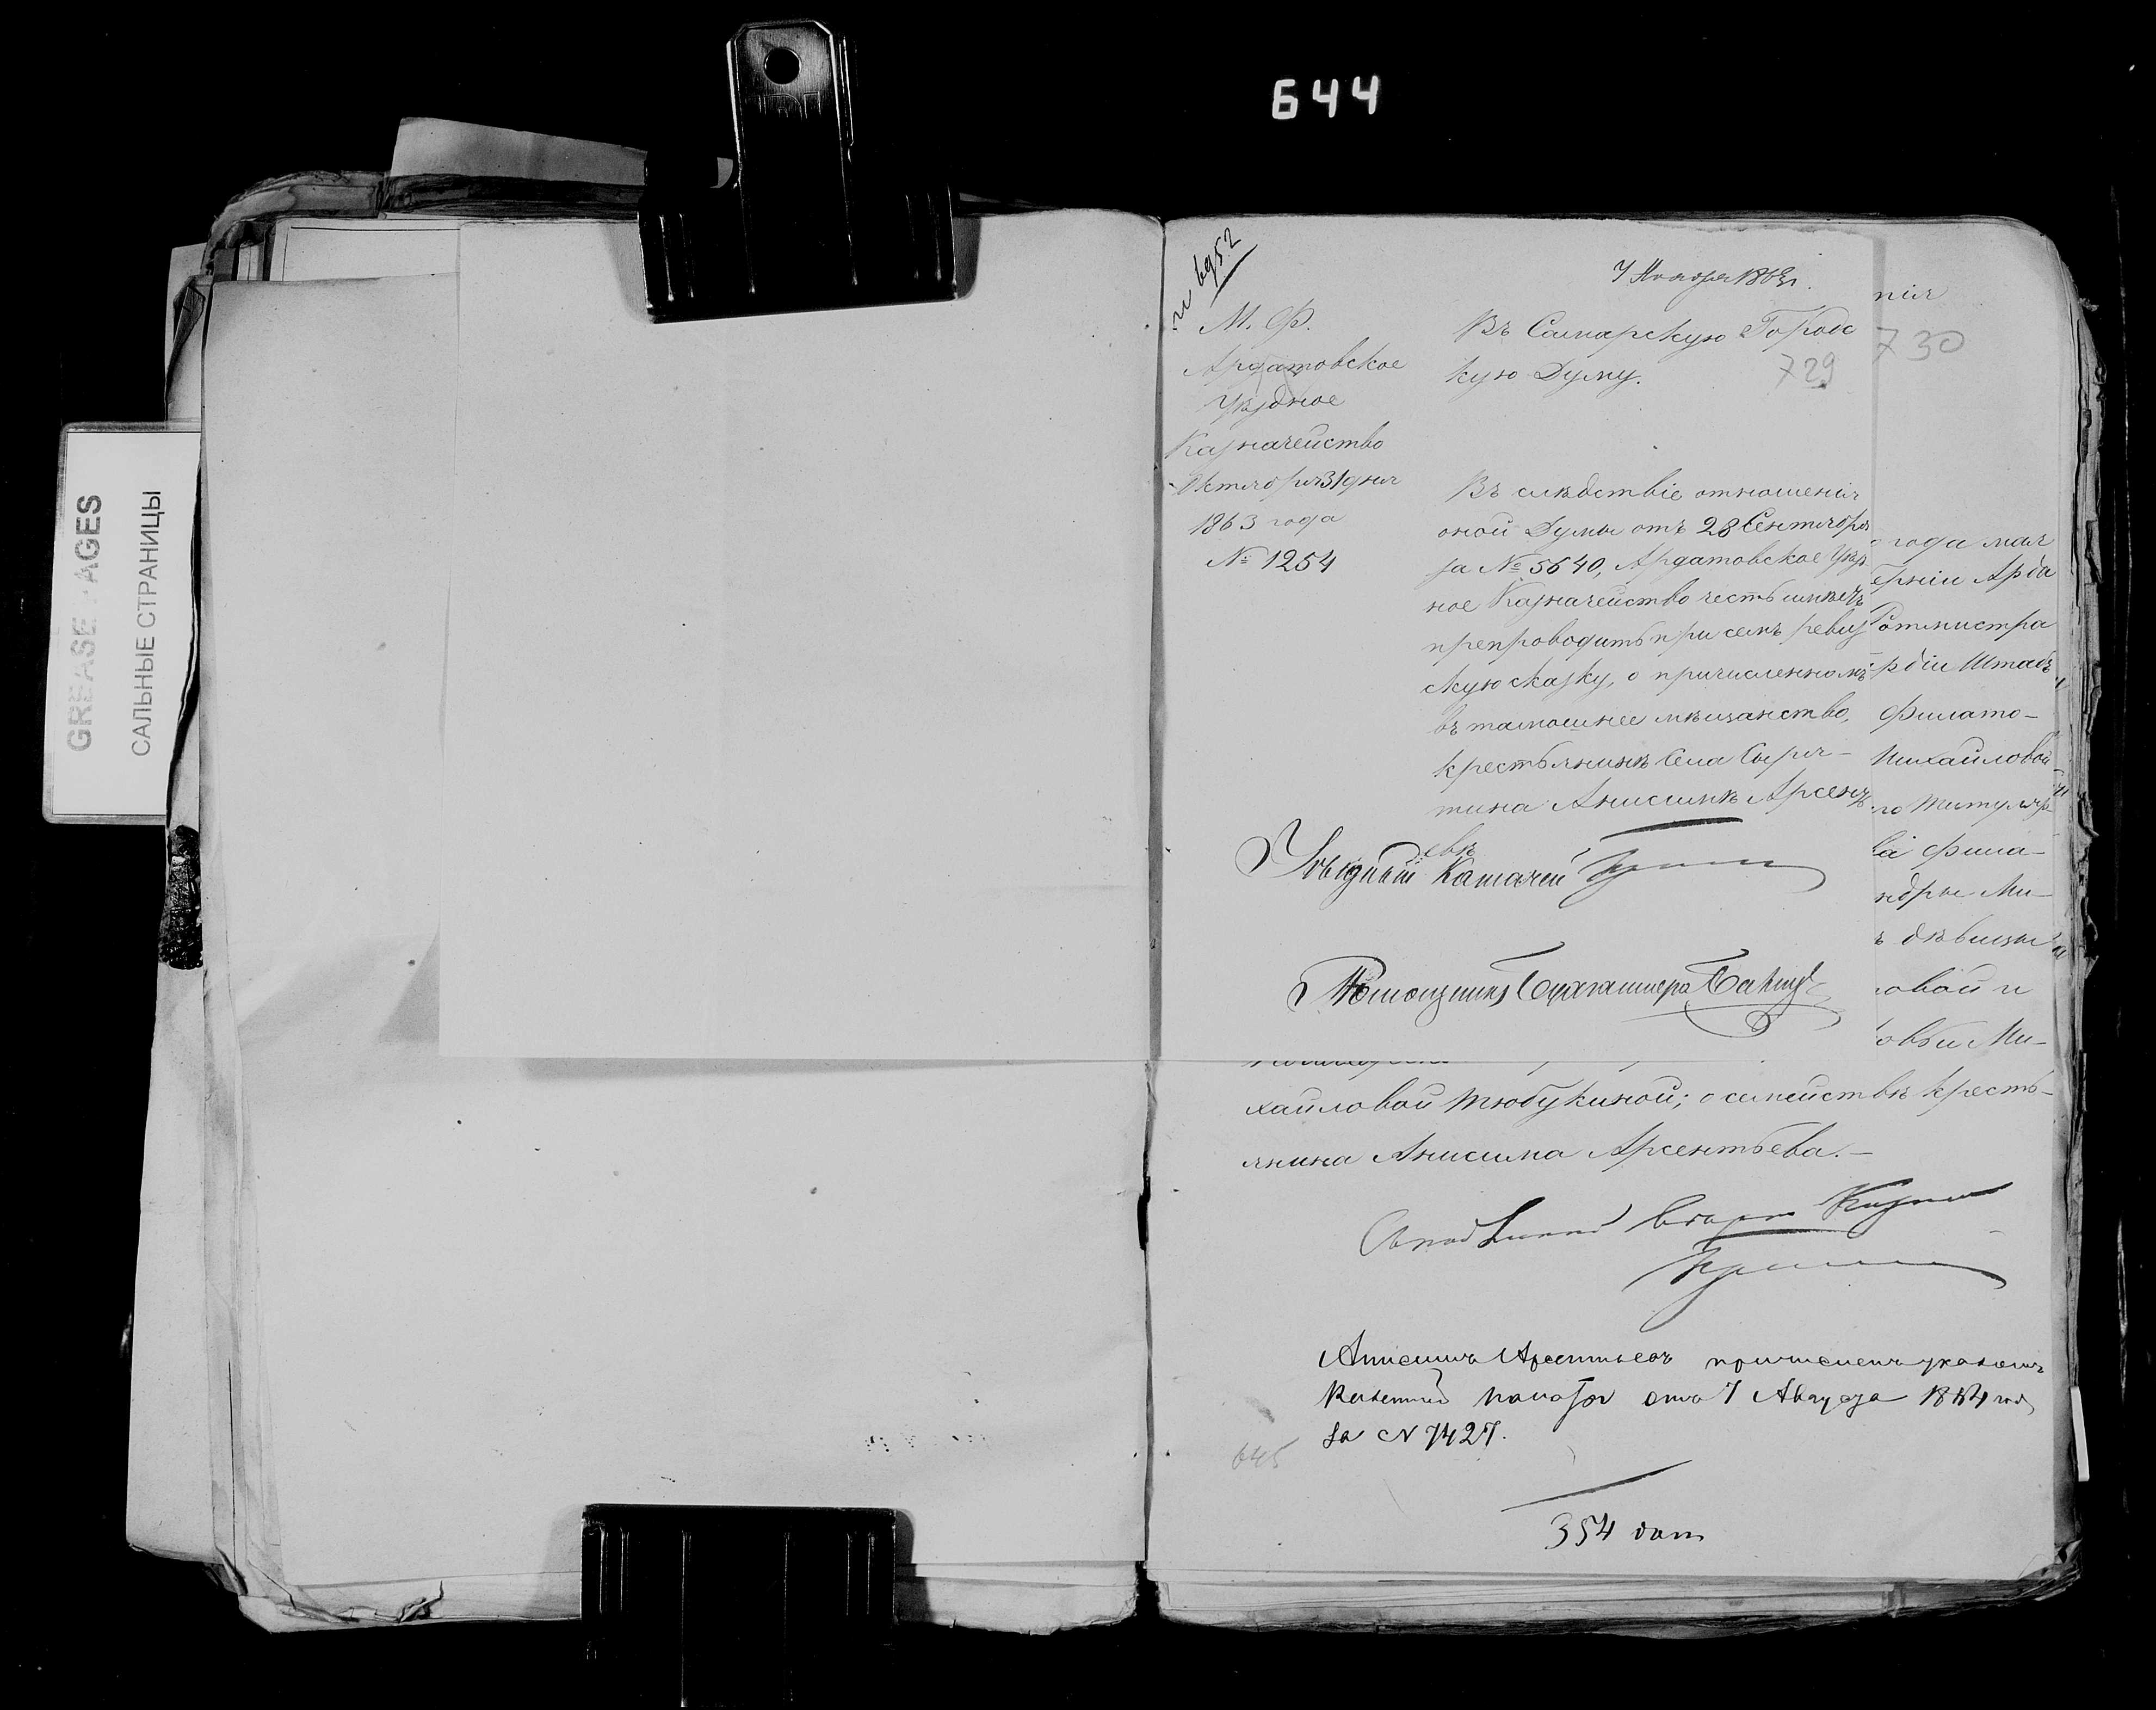 644
GREASE PAGES
САЛЬНЫЕ СТРАНИЦЫ
№ 6952
7 Ноября 1863 г.
М. Ф.
Ардатовское
Уѣздное
Казначейство
Октября 31 дня
1863 года
№ 1254
Въ Самарскую Городс
кую Думу.
729
Въ слѣдствіе отношенія
оной Думы отъ 28 Сентября
за № 5640, Ардатовское Уѣзд
ное Казначейство честь имѣетъ
препроводить при семъ ревиз
скую сказку, о причисленномъ
въ тамошнее мѣщанство,
крестьянинѣ Села Сыря-
тина Анисимѣ Арсенть
евѣ
Уѣздный Казначей
Помощникъ Бухгалтера
нія
730
года мая
ерніи Арда
Ротмистра
рдіи Штабъ
Филато-
Михайловой
ло Титуляр
ва Фила-
ндры Ми-
ъ дѣвицы
ловой и
овьи Ми-
хайловой Тюбукиной; о семействѣ кресть-
янина Анисима Арсентьева.-
Анисимъ Арсентьевъ причисленъ указомъ
Казенной Палаты отъ 7 Августа 18 4 год
за № 7427.
645
354 дат